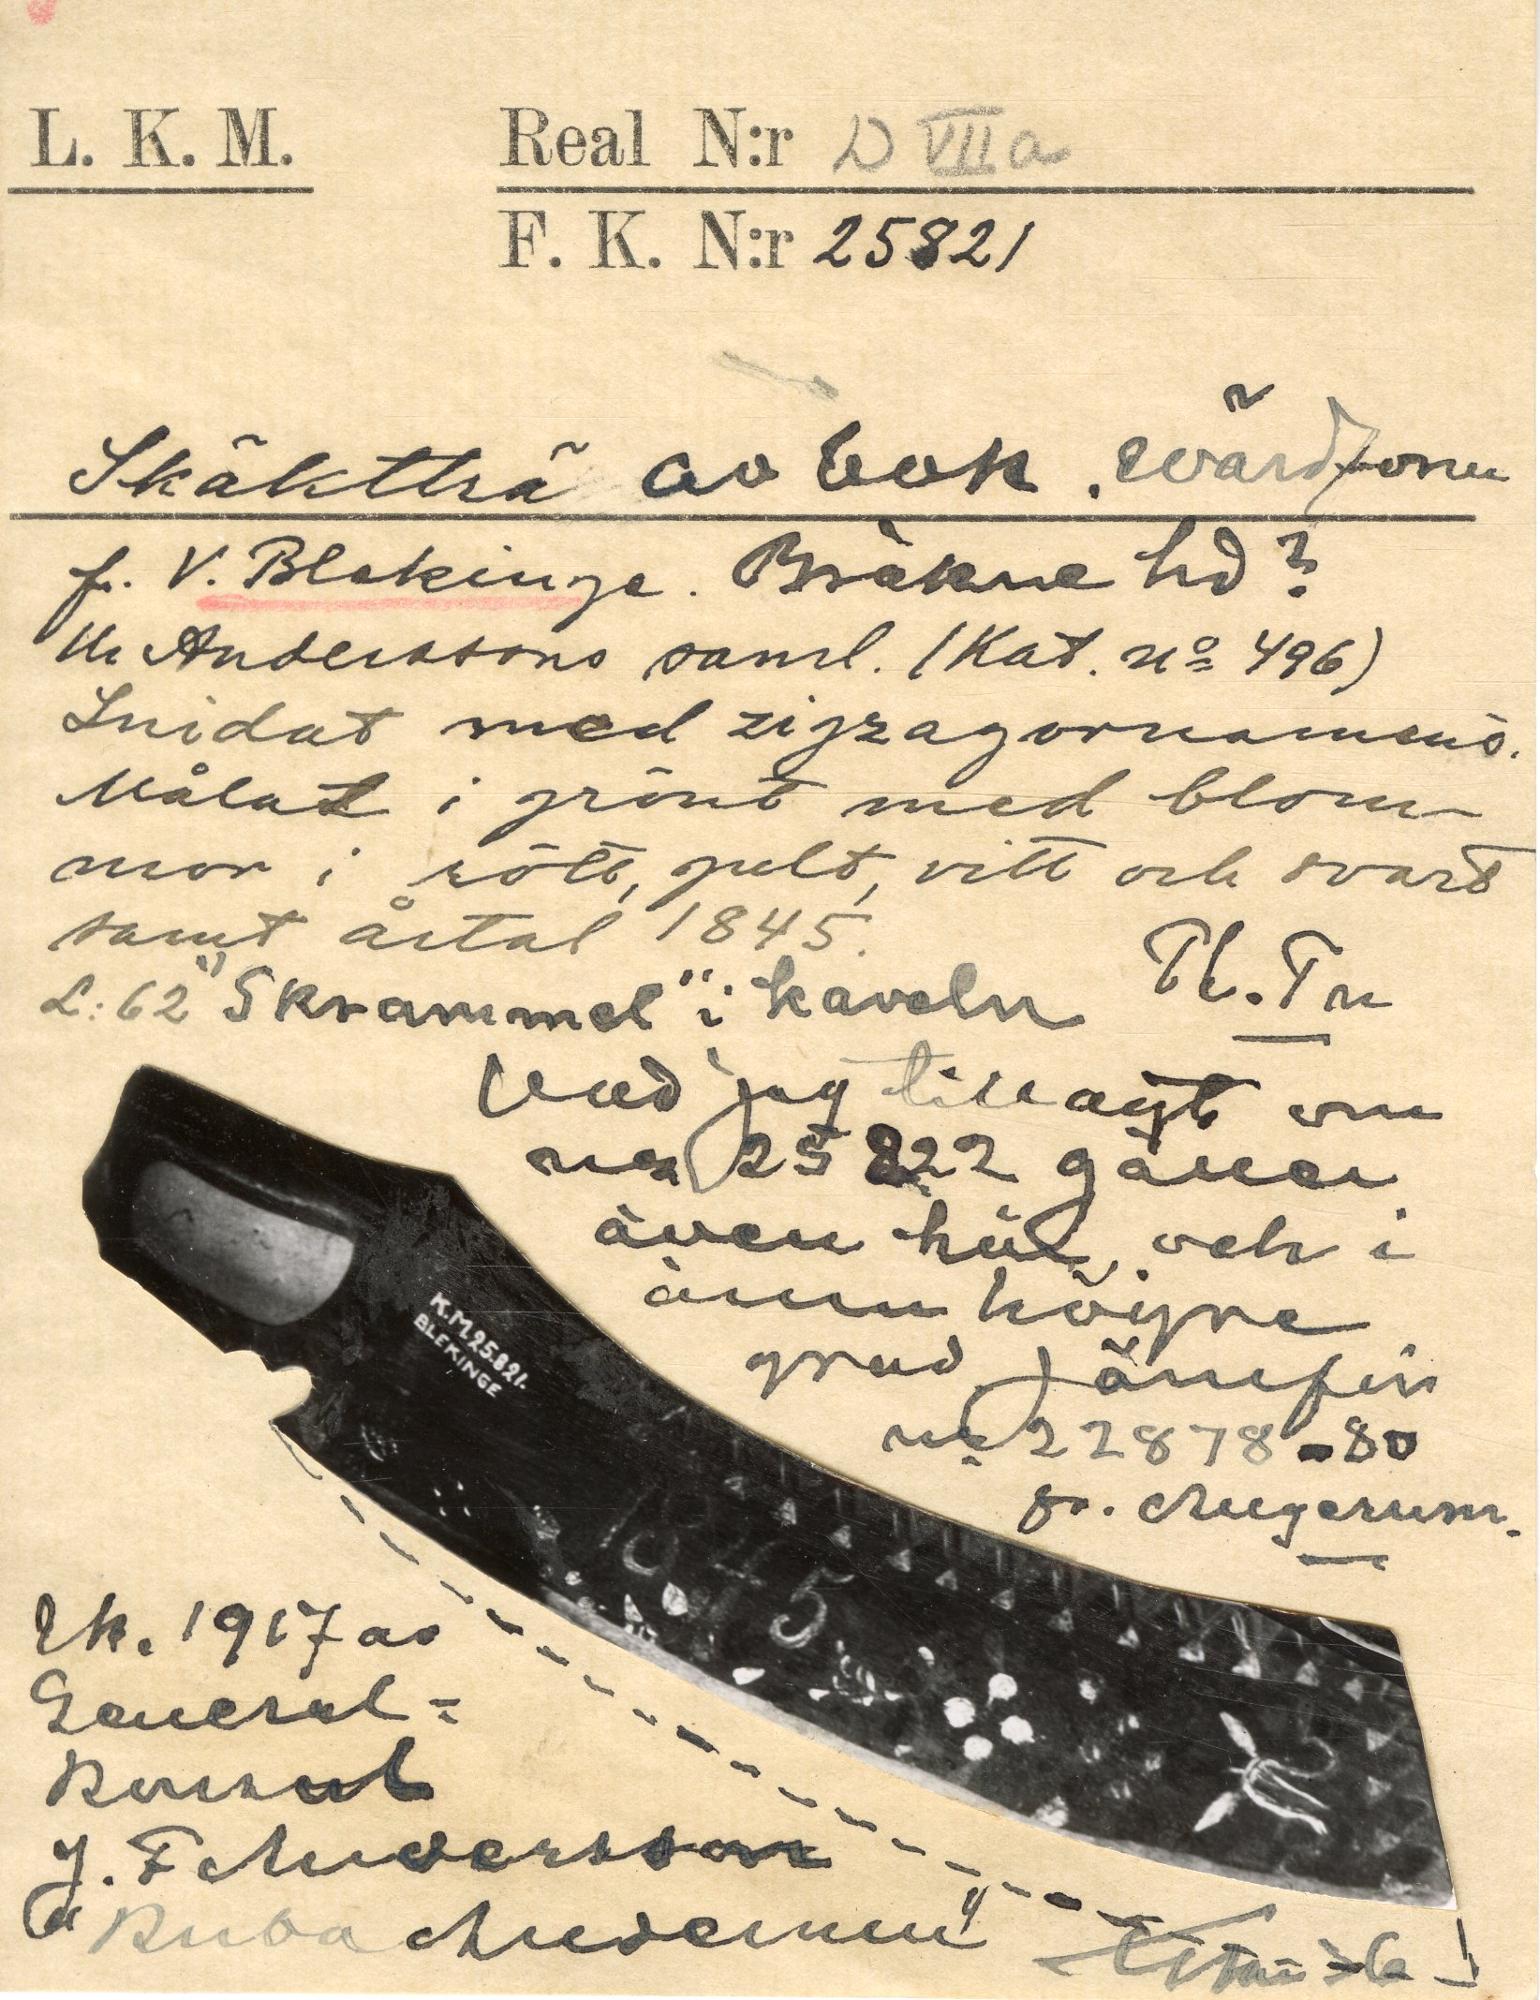 L. K. M.
Real N:r D VIIa
F. K. N:r 25821
Skäktträ av bok. svärdform
fr. V. Blekinge. Bräkne hd?
Anderssons saml. (Kat. nº 496)
Snidat med zigzagornament.
Målat i grönt med blom-
mor i rött, gult, vitt och svart
samt årtal 1845.
L: 62 "Skrammel" i kaveln Th. Tn
Vad jag tillagt om
nr 25822 gäller
även här, och i
ännu högre
grad. Jämför
nr 22878-80
fr. Augerum.
K.M. 25.821.
BLEKINGE
1845
Ik. 1917 av
General-
konsul
J. F Andersson
"Kuba Andersson"